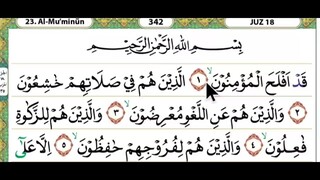 23. Al-Mu'minūn 342 JUZ 18
بِسْمِ اللّٰهِ الرَّحْمٰنِ الرَّحِيْمِ
قَدْ اَفْلَحَ الْمُؤْمِنُوْنَۙ ۝١ الَّذِيْنَ هُمْ فِيْ صَلَاتِهِمْ خٰشِعُوْنَ
۝٢ وَالَّذِيْنَ هُمْ عَنِ اللَّغْوِ مُعْرِضُوْنَۙ ۝٣ وَالَّذِيْنَ هُمْ لِلزَّكٰوةِ
فٰعِلُوْنَۙ ۝٤ وَالَّذِيْنَ هُمْ لِفُرُوْجِهِمْ حٰفِظُوْنَۙ ۝٥ اِلَّا عَلٰٓى